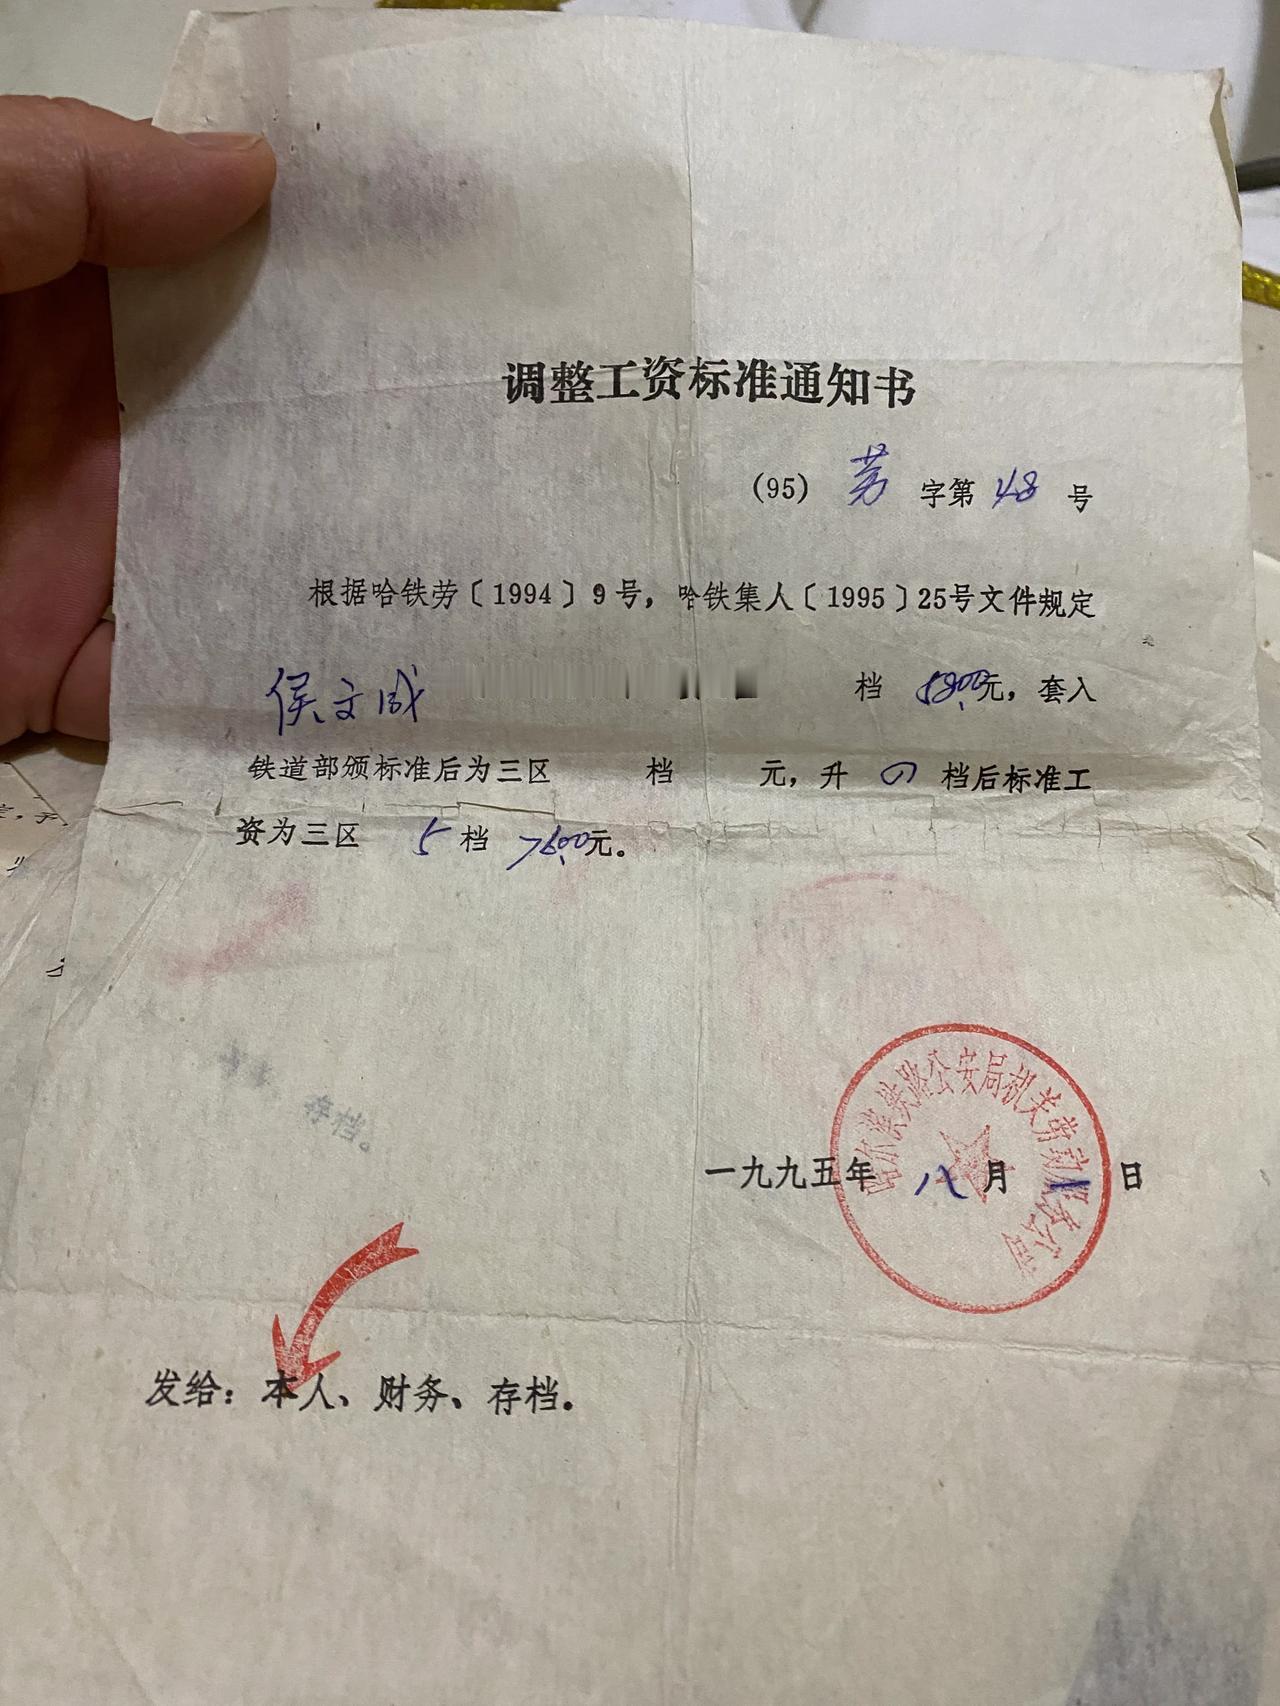 调整工资标准通知书
(95) 劳 字第 48 号
根据哈铁劳〔1994〕9号，哈铁集人〔1995〕25号文件规定
侯文成 档 元，套入
铁道部颁标准后为三区 档 元，升 档后标准工
资为三区 5 档 76.00元。
存档。
哈尔滨铁路公安局机关劳动服务公司
一九九五年 八 月 日
发给：本人、财务、存档。